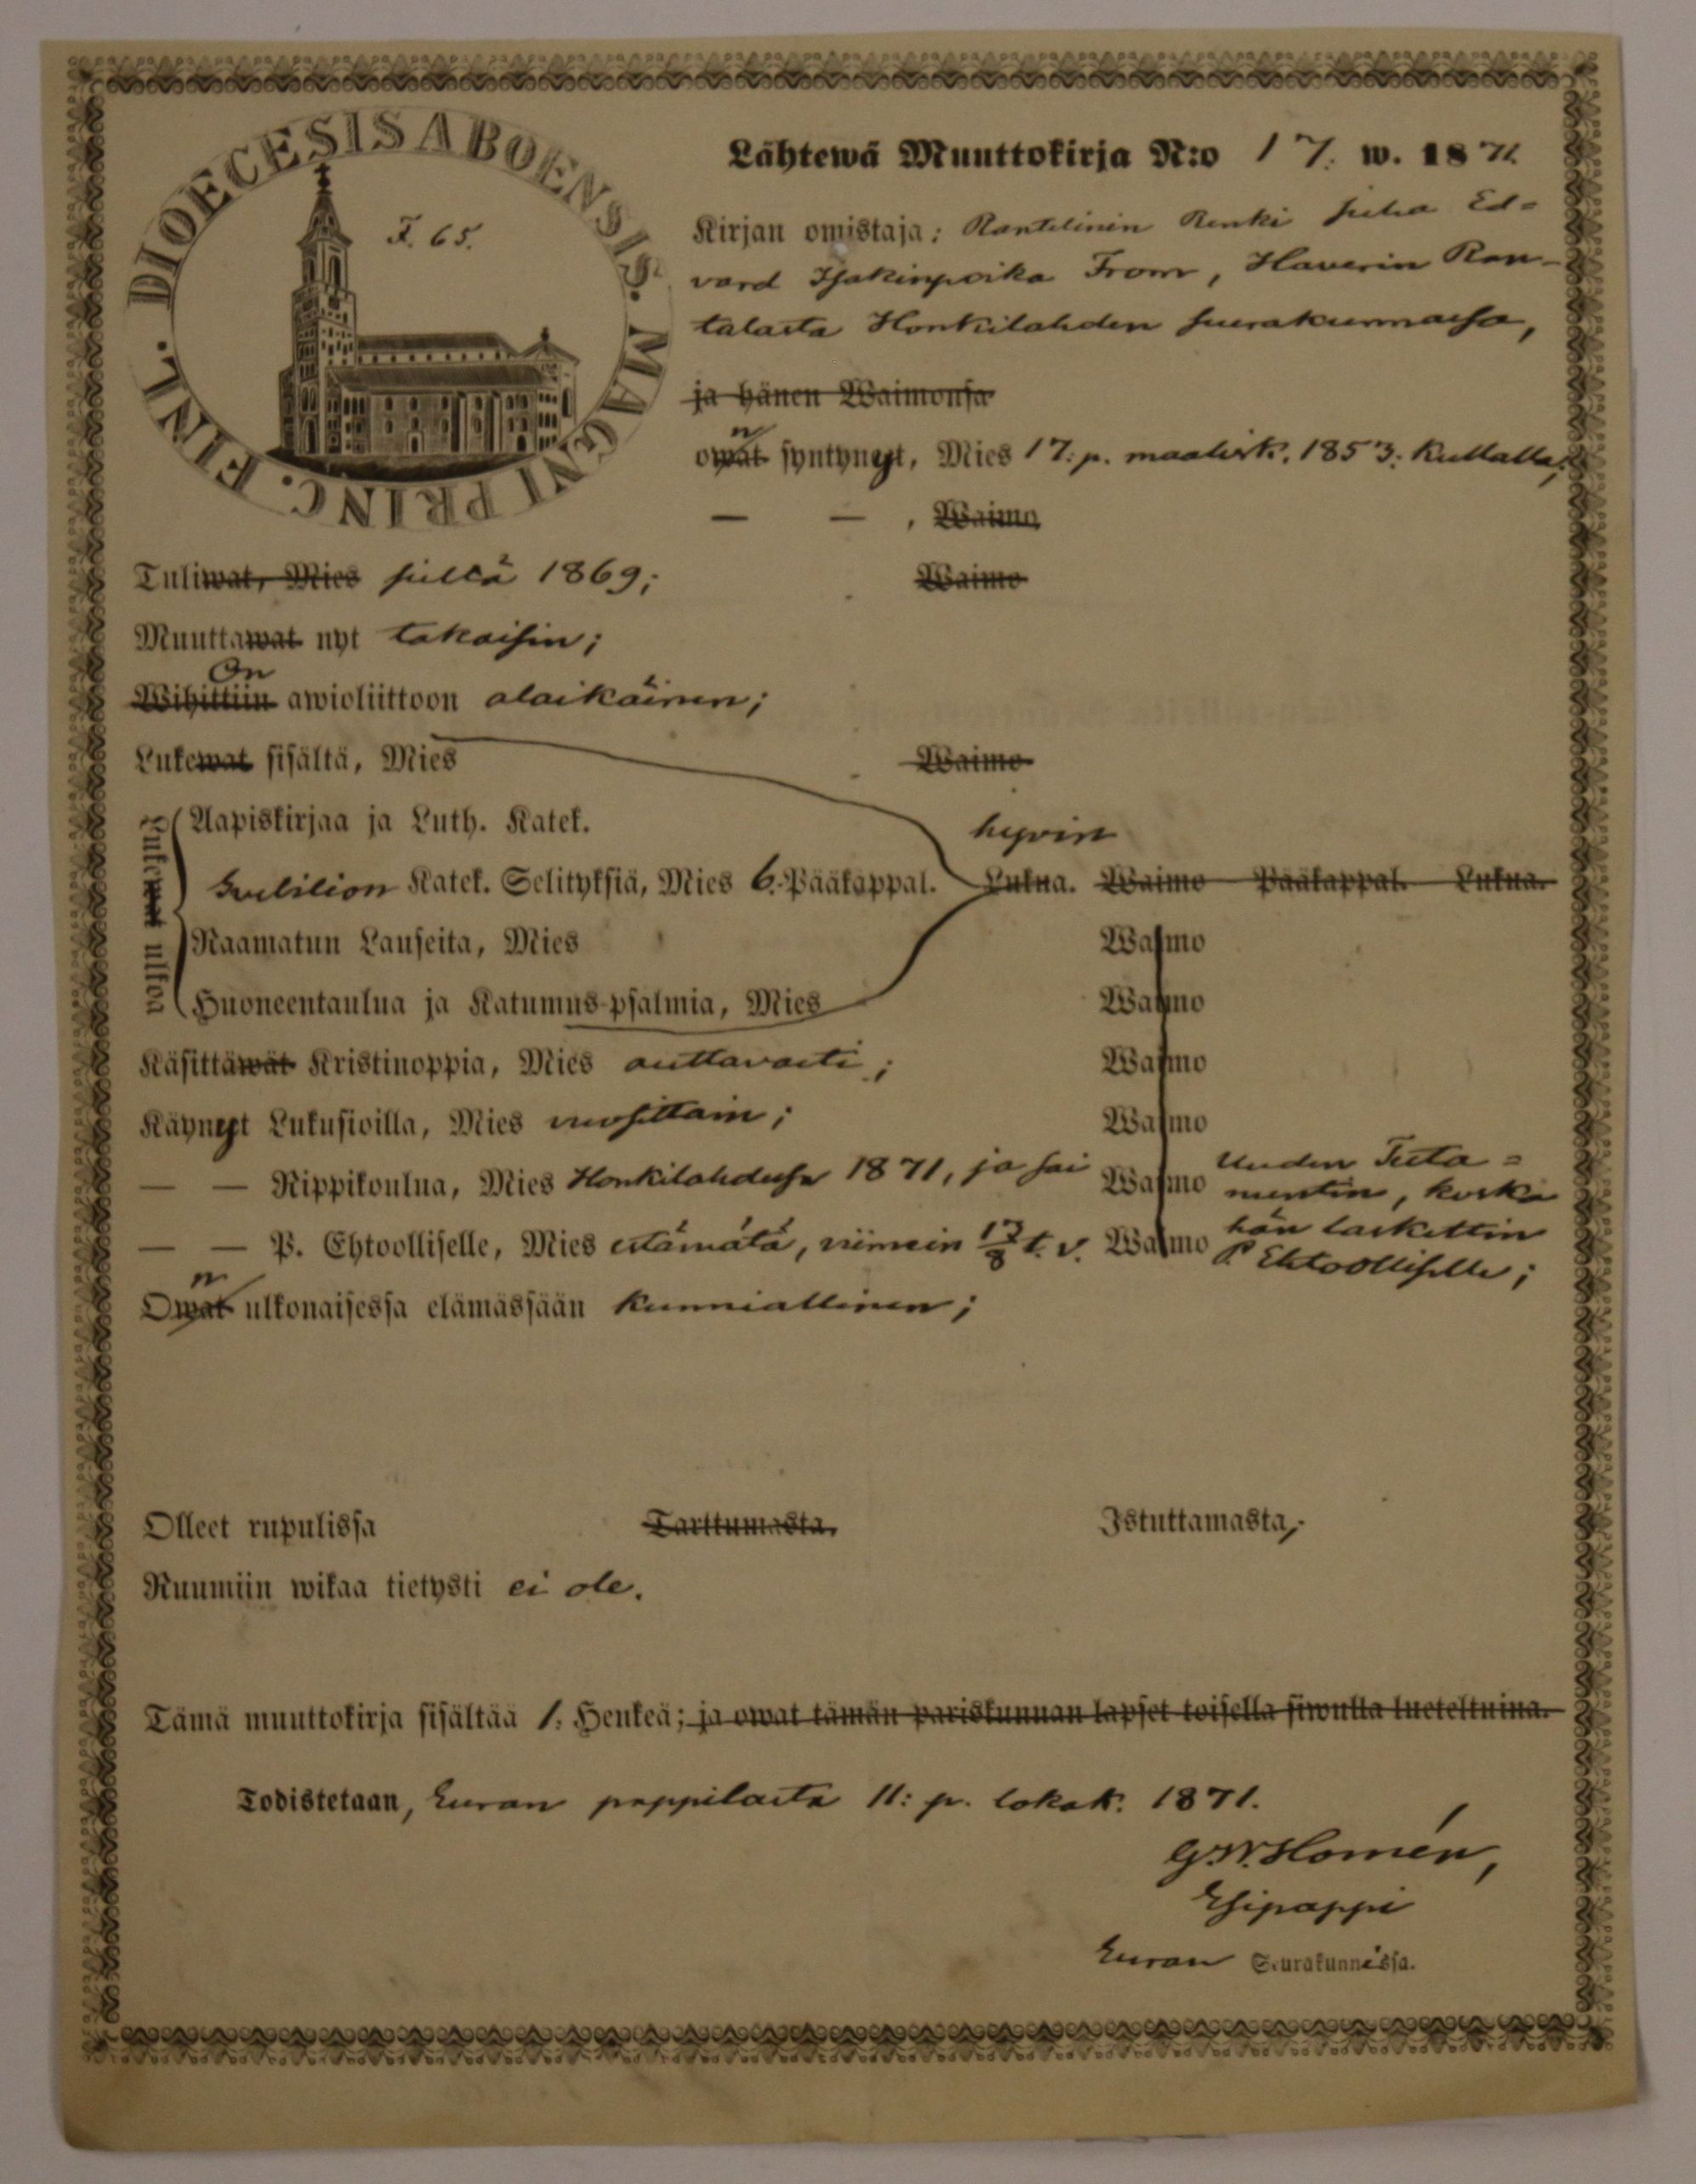 DIOECESIS ABOENSIS. MAGNI PRINC. FINL.
F. 65.
Lähtewä Muuttokirja N:o 17. w. 1871.
Kirjan omistaja: Renki Juha Ed=
vard Isakinpoika From, Haverin Ran-
talasta Honkilahden seurakunnassa,
ja hänen Waimonsa
owat n syntynyt, Mies 17: p. maalisk. 1853: Kullalla;
— — , Waimo
Tuliwat, Mies sieltä 1869; Waimo
Muuttawat nyt takaisin;
On
Wihittiin awioliittoon alaikäinen;
Lukewat sisältä, Mies Waimo
Lukewat ulkoa
Aapiskirjaa ja Luth. Katek. hyvin
Katek. Selityksiä, Mies 6. Pääkappal. Lukua. Waimo Pääkappal. Lukua.
Raamatun Lauseita, Mies Waimo
Huoneentaulua ja Katumus-psalmia, Mies Waimo
Käsittäwät Kristinoppia, Mies auttavasti; Waimo
Käynyt Lukusioilla, Mies vuosittain; Waimo
— — Rippikoulua, Mies Honkilahdessa 1871, ja sai Waimo Uuden Testa=
mentin, koska
— — P. Ehtoolliselle, Mies estämätä, viimein 13/8 t. v. Waimo hän laskettiin
P. Ehtoolliselle;
Owat n ulkonaisessa elämässään kunniallinen;
Olleet rupulissa Tarttumasta, Istuttamasta,
Ruumiin wikaa tietysti ei ole.
Tämä muuttokirja sisältää 1: Henkeä; ja owat tämän pariskunnan lapset toisella siwulla lueteltuina.
Todistetaan, Euran pappilasta 11: p. lokak. 1871.
G.W. Homén,
Esipappi
Euran Seurakunnissa.